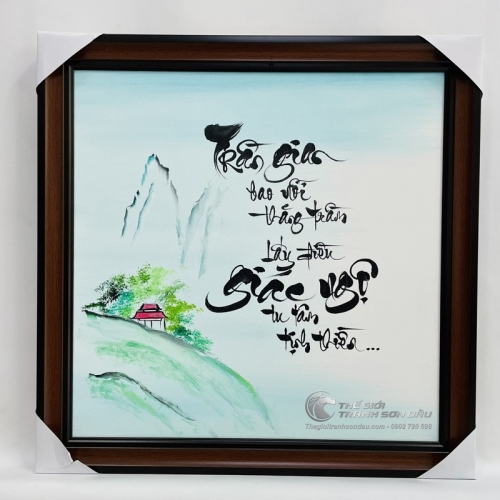 Trần gian
bao nỗi
thăng trầm
Lấy điều
giác ngộ
tu tâm
tịnh thiền...
THẾ GIỚI
TRANH SƠN DẦU
Thegioitranhsondau.com - 0902 720 598